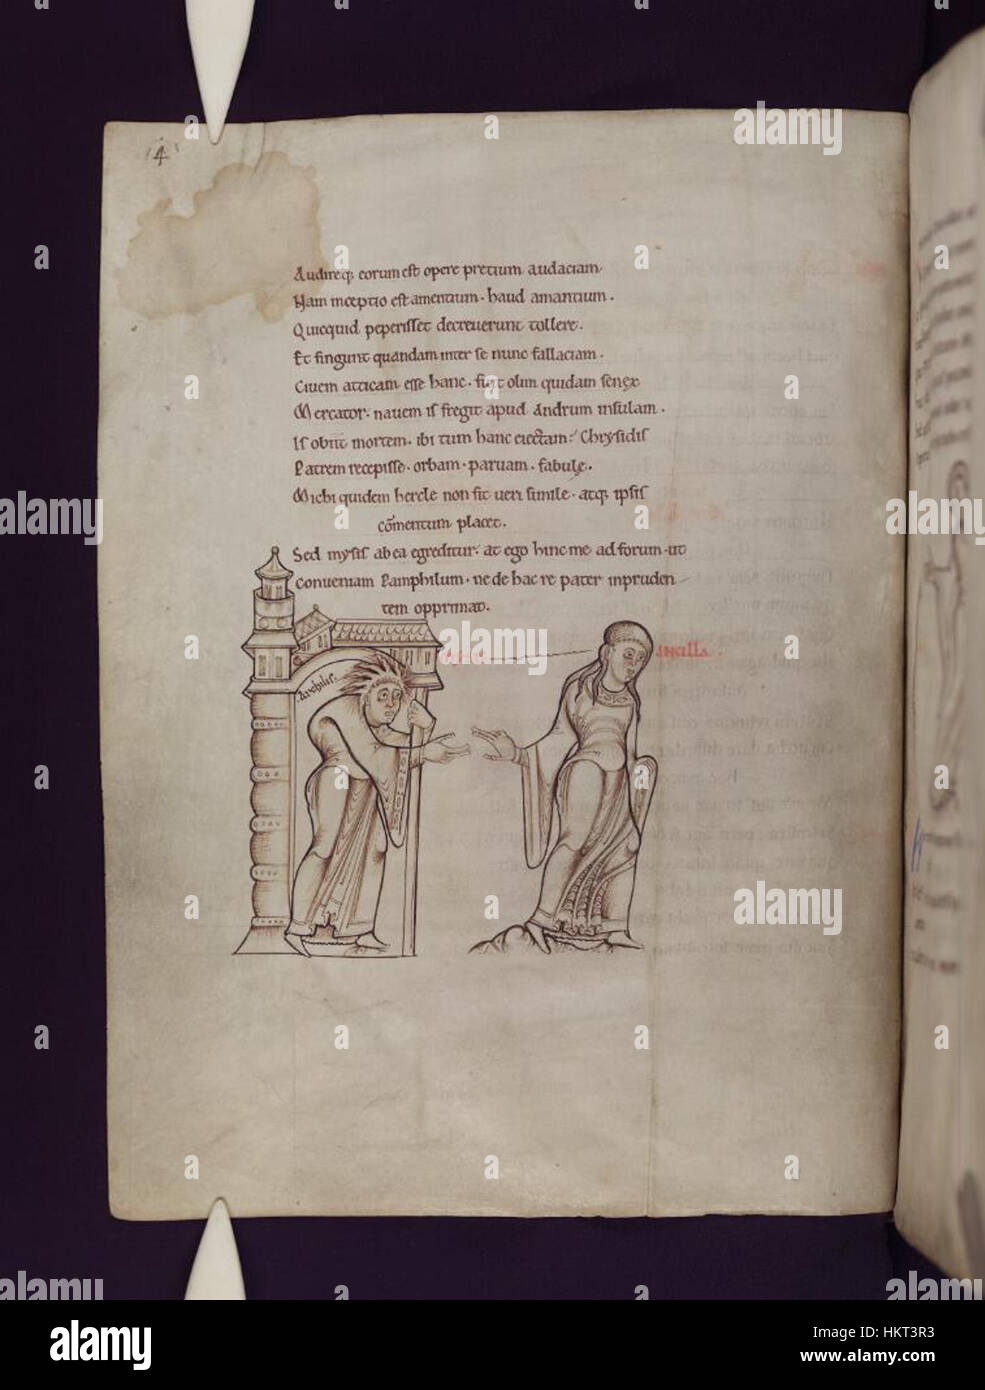 4
Audireq; eorum est opere pretium audaciam.
Nam inceptio est amentium. haud amantium.
Quicquid peperisset decreuerunt tollere.
Et fingunt quandam inter se nunc fallaciam.
Ciuem atticam esse hanc. fuit olim quidam senex
Mercator. nauem is fregit apud Andrum insulam.
Is obiit mortem. ibi tum hanc eiectam. Chrysidis
Patrem recepisse. orbam. paruam. fabulę.
Michi quidem hercle non fit ueri simile. atq; ipsis
cōmentum placet.
Sed mysis ab ea egreditur. at ego hinc me ad forum. ut
Conueniam Pamphilum. ne de hac re pater inpruden
tem opprimat.
ancilla.
Archilis.
alamy
alamy
alamy
alamy
alamy
alamy
a alamy
Image ID: HKT3R3
www.alamy.com